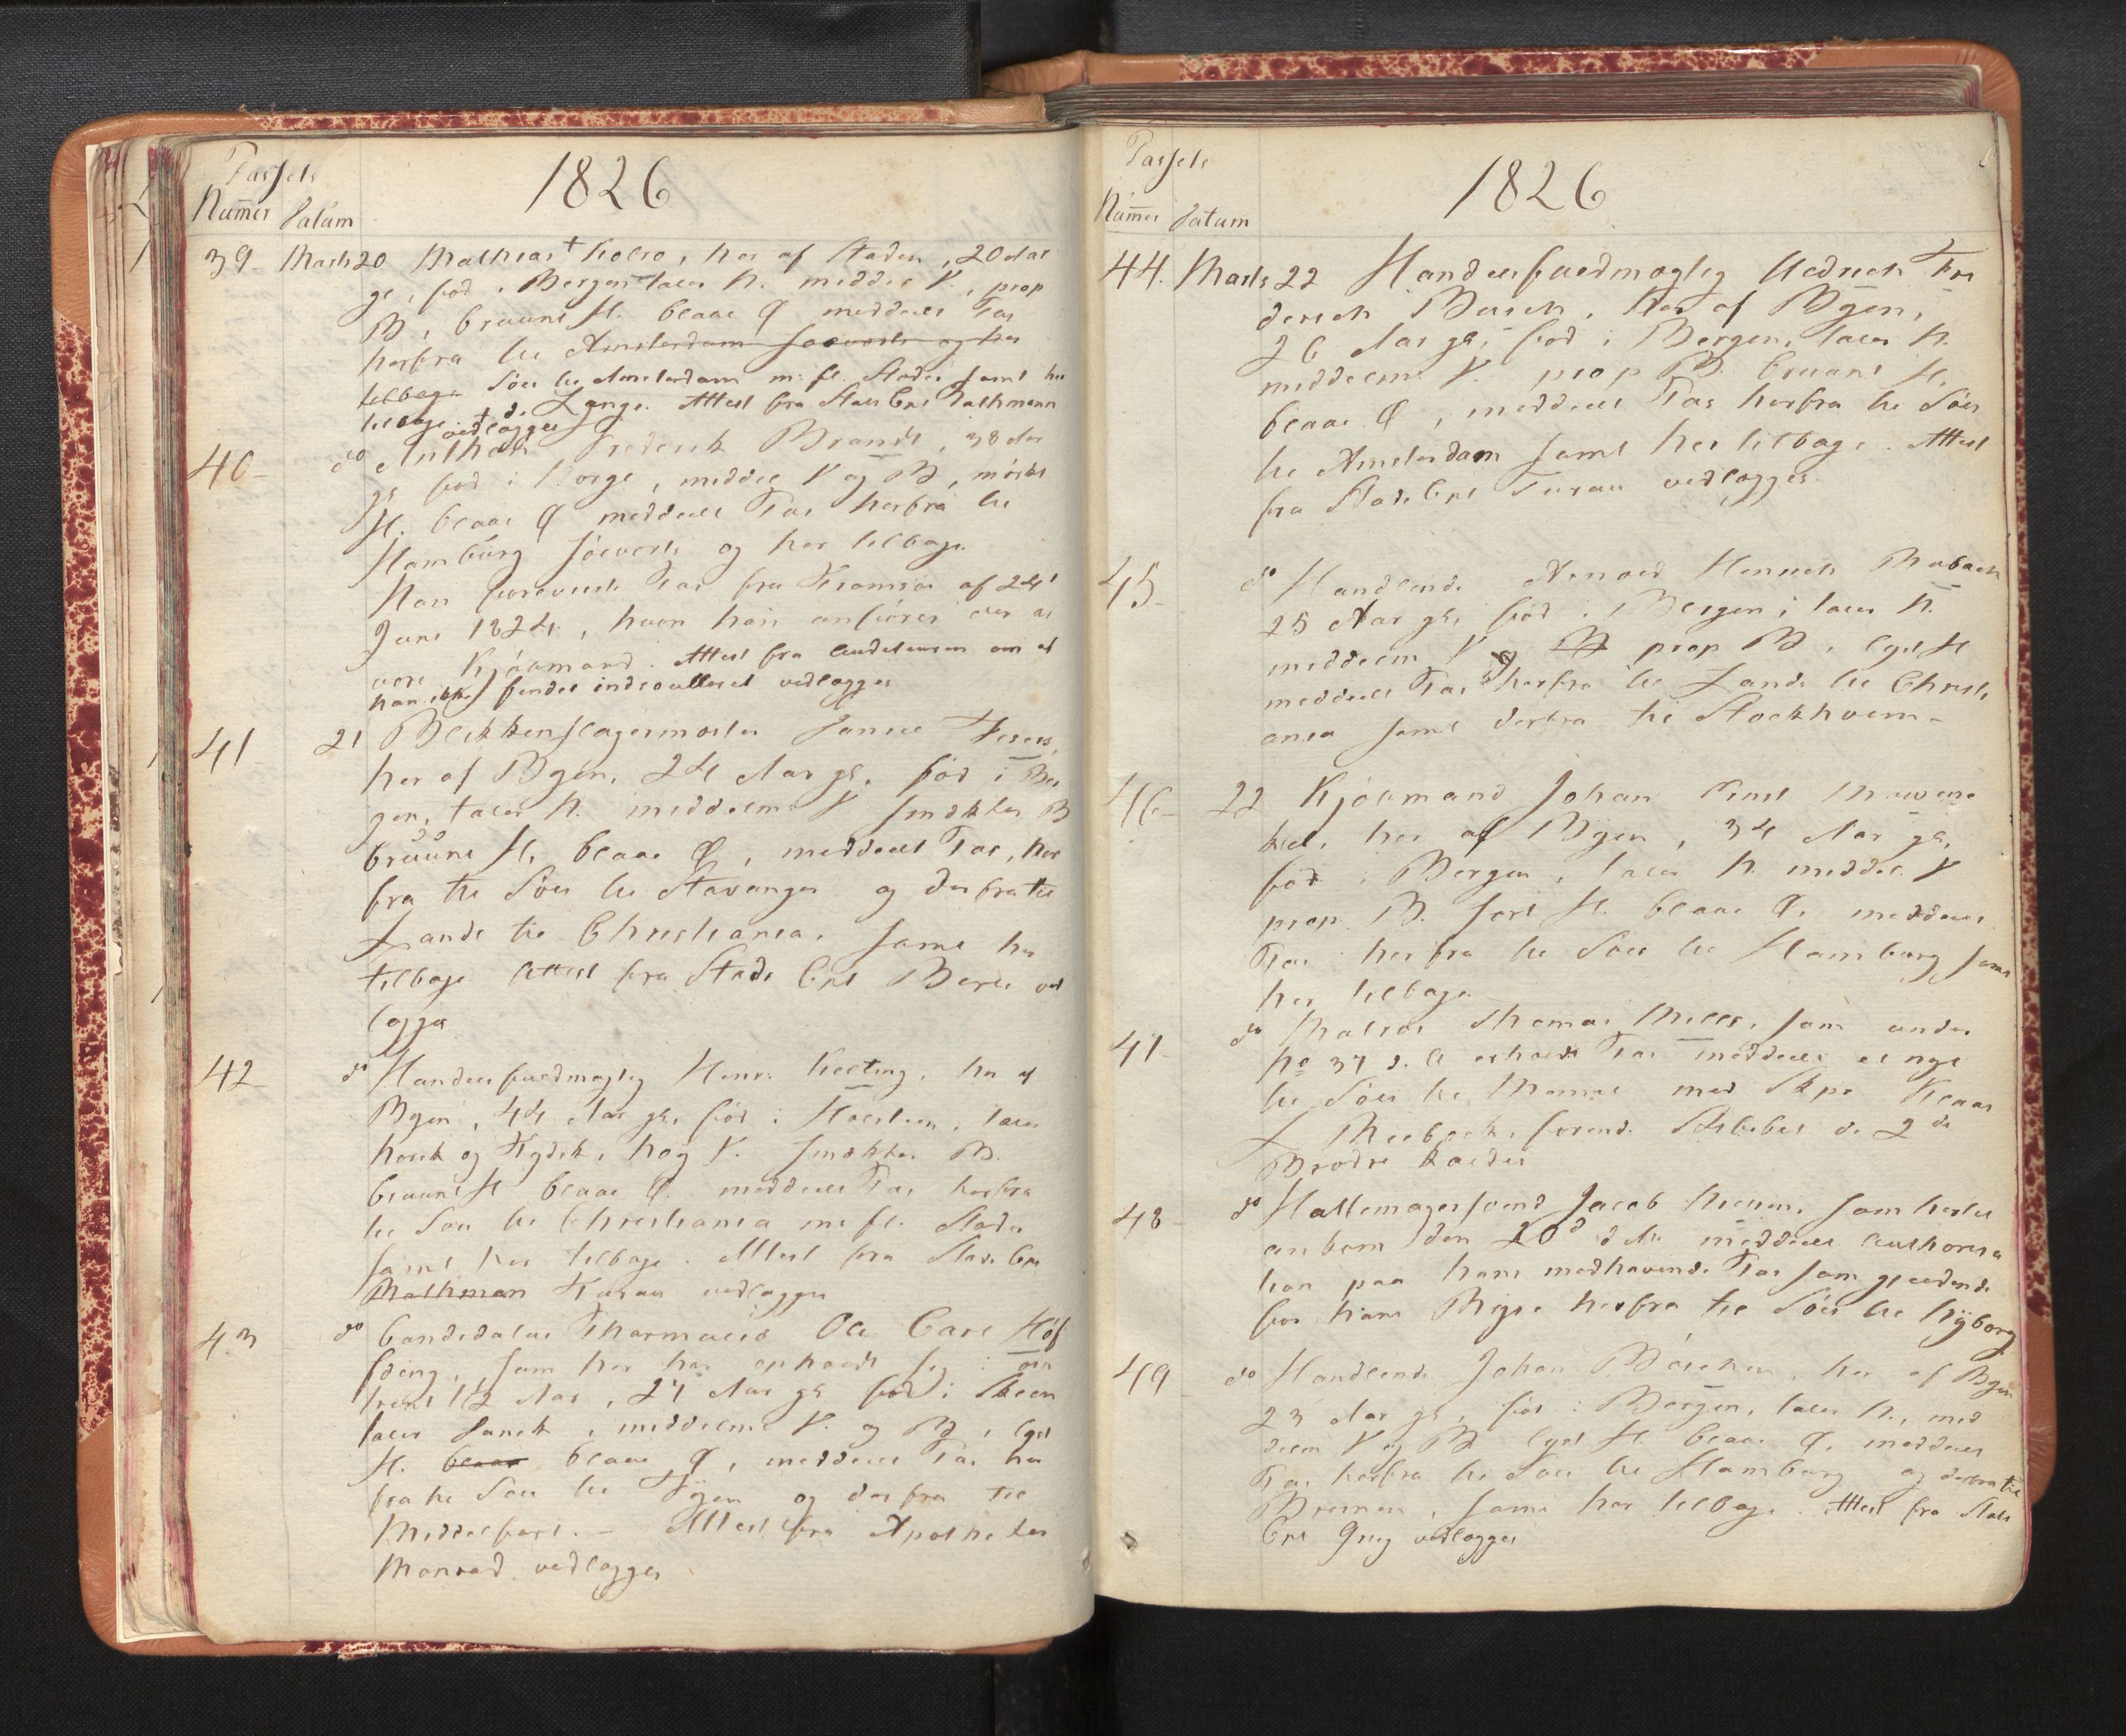 Passets
Numer Datum
1826
39 Marts 20 Mathias Holbo, her af Staden, 20 Aar
gl, fød i Bergen taler N. middel V., prop
B, bruunt H. blaae Ø meddeelt Pas
herfra til Amsterdam Søeverts og her
tilbage Søes til Amsterdam m: fl. Stæder samt her
tilbage d. Lange. Attest fra Stads Cpt Dathmann
vedlægges
40 do Anthon Frederik Brandt, 38 Aar
gl fød i Norge, middel V og B, mørkt
H. blaae Ø meddeelt Pas herfra til
Hamburg Søeverts og her tilbage.
Han foreviste Pas fra Tromsøe af 24
Juni 1824, hvori han anføres der at
være Kjøbmand. Attest fra om at
han ikke findes indroulleret vedlægges
41 21 Blikkenslagermester Daniel
her af Byen, 24 Aar gl. fød i Ber
gen, taler N. middelm: V smekker B
bruunt H, blaae Ø, meddeelt Pas, her
fra til Søes til Stavanger og derfra til
Lands til Christiania. samt her
tilbage Attest fra Stads Cpt ved
lægges
42 do Handelsfuldmægtig Henr: Kelting, her af
Byen, 44 Aar gl, fød i Holsteen, taler
Norsk og Tydsk, høy V. smekker B.
bruunt H blaae Ø. meddeelt Pas herfra
til Søes til Christiania m: fl. Stæder
samt her tilbage. Attest fra Stads Cpt
Mathman vedlægges
43 do Candidatus Pharmacia Ole Carl Høf
fding, som her har opholdt sig i om
trent 1/2 Aar, 27 Aar gl fød i Skeen
taler Dansk, middelm: V. og B, lyst
H. blaae blaae Ø, meddeelt Pas her
fra til Søes til Fyen og derfra til
Middelfart. – Attest fra Apotheker
Monrad vedlægges
Passets
Numer Datum
1826
44. Marts 22 Handelsfuldmægtig Fre
derich Busch, her af Byen,
26 Aar gl, fød i Bergen, taler N.
middelm: V. prop B. bruunt H,
blaae Ø, meddeelt Pas herfra til Søes
til Amsterdam samt her tilbage. Attest
fra Stads Cpt vedlægges.
45 do Handlende Arnold Henrich
25 Aar gl, fød i Bergen, taler N.
middelm V og B prop B, lyst H
meddeelt Pas herfra til Lands til Christi
ania samt derfra til Stockholm –
46 22 Kjøbmand Johan Ernst Mowinc
kel, her af Byen, 34 Aar gl,
fød i Bergen, taler N. middel V
prop. B. sort H. blaae Ø. meddeelt
Pas herfra til Søes til Hamburg samt
her tilbage
47 do Matros Thomas Mills, som under
No 37 d. A erholdt Pas meddeelt et nyt
til Søes til med Skpr Klaas
førende d. 2de
Brødre kaldet
48 do Hattemagersvend Jacob som hertil
ankom den 20d ds. meddeelt Authorisa
tion paa hans medhavende Pas som gjældende
for hans Reyse herfra til Søes til Nyborg
49 do Handlende Johan her af Byen
23 Aar gl, fød i Bergen, taler N., mid
delm V og B lyst H. blaae Ø. meddeelt
Pas herfra til Søes til Hamburg og derfra til
Bremen, samt her tilbage. Attest fra Stads
Cpt Grieg vedlægges